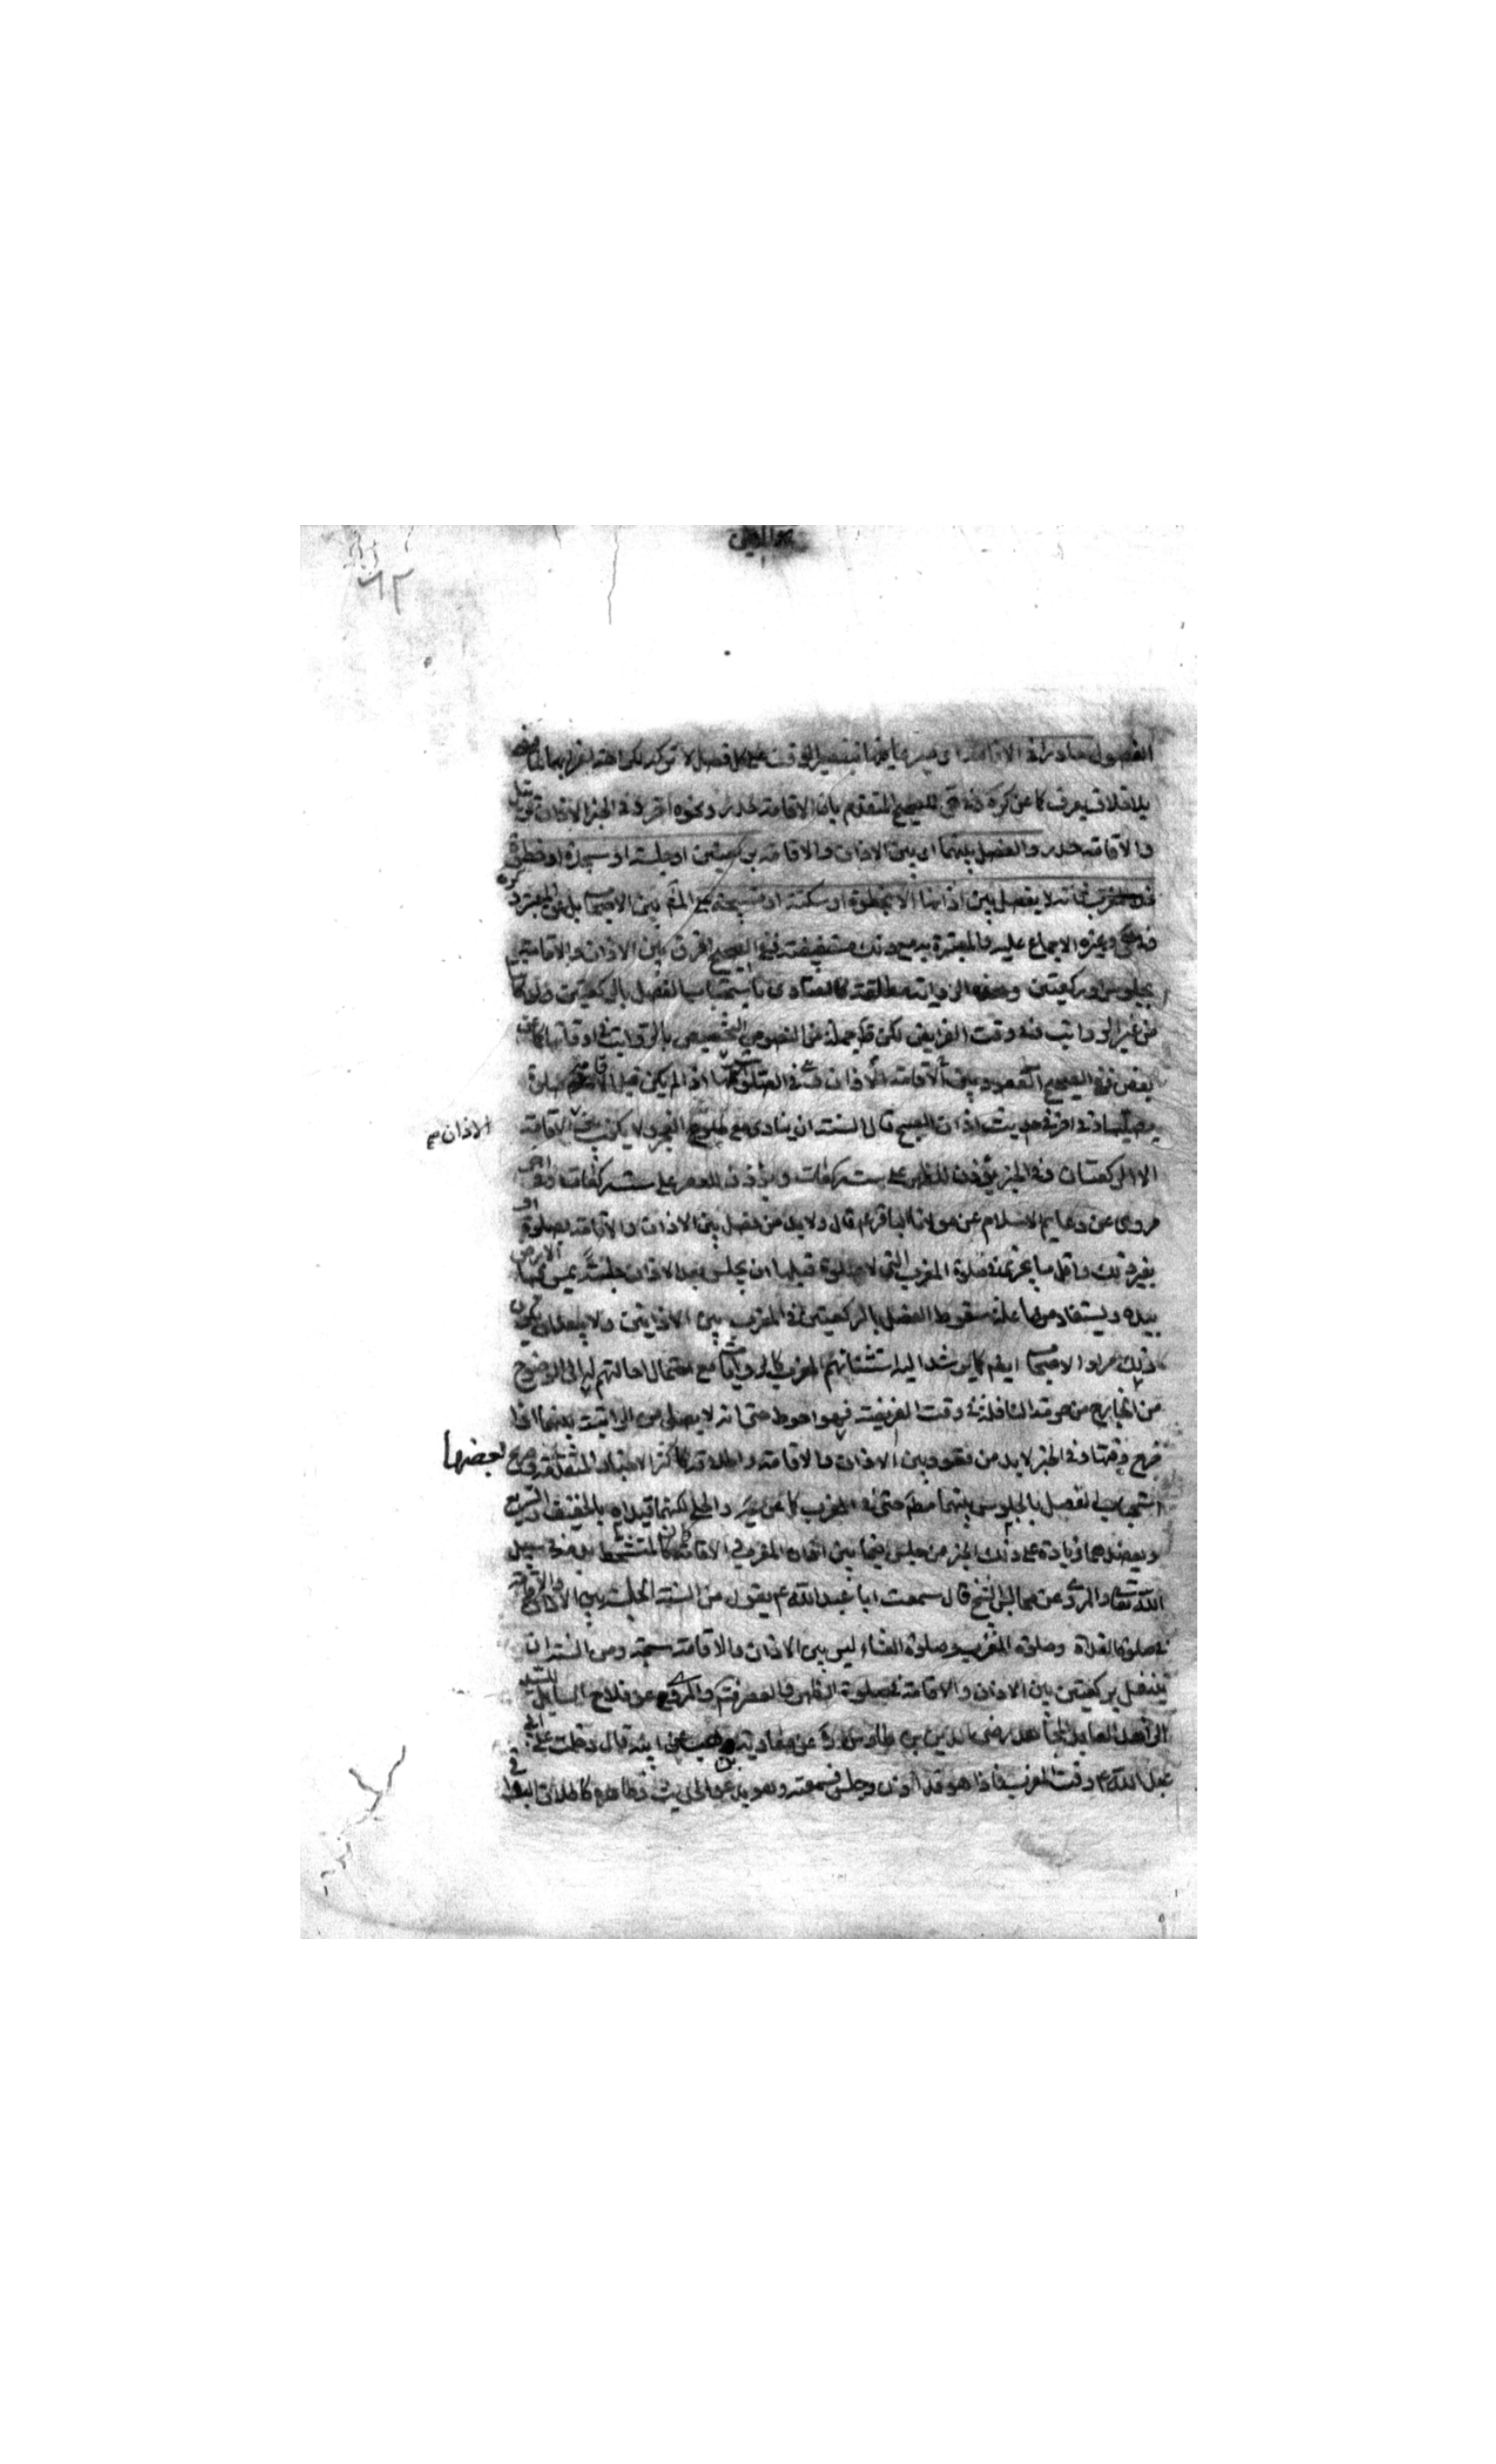 الفصول حادرا في الاقامة اى فيها بتقصير الوقت على كل فصل لا تركه لكراهة
بلا خلاف يعرف كما عن كره في للصحيح المتقدم بان الاقامة حدر ونحوه اخر وفي الخبر الاذان ترتيل
والاقامة حدر والفصل بينهما اى بين الاذان والاقامة بركعتين او جلسة او سجدة او خطوة
فانه لا يفصل بين اذانيها الا بخطوة او سكتة او تسبيحة على المشهور بين الاصحاب بل عن المعتبر وكره
وغيره الاجماع عليه والمعتبرة به مع ذلك مستفيضة ففي الصحيح افرق بين الاذان والاقامة
بجلوس او بركعتين وهذه الرواية مطلقة كالفتاوى باستحباب الفصل بالركعتين ولو كانا
من غير الرواتب في وقت الفرايض لكن جملة من النصوص التخصيص بالرواتب في اوقاتها كما عن
بعض ففي الصحيح القعود بين الاقامة الاذان في الصلوة كلها اذا لم يكن قبل الاقامة صلوة
يصليها وفي اخر في حديث اذان الصبح قال السنة ان ينادى مع طلوع الفجر ولا يكون بين الاقامة
الاذان صح
الا الركعتان وفي الخبر يؤذن للظهر على ست ركعات ويؤذن للعصر على ست ركعات
مروى عن دعايم الاسلام عن مولانا الباقر ع قال ولا بد من فصل بين الاذان والاقامة بصلوة او
بغير ذلك واقل ما يجزى في صلوة المغرب التي لا صلوة قبلها ان يجلس بعد الاذان جلسة يمس فيها الارض
بيده ويستفاد منها علة سقوط الفصل بالركعتين في المغرب بين الاذانين ولا يبعد ان يكون
ذلك مراد الاصحاب ايضا كما يرشد اليه استثنائهم المغرب كالروايات مع احتمال احالتهم لها الى الوضوح
من الخارج من حرمة النافلة في وقت الفريضة فهو احوط حتى انه لا يصلى من الراتبة بينهما اذا
خرج وقتها وفي الخبر لا بد من قعود بين الاذان والاقامة واطلاقه كاكثر الاخبار المتقدمة
بعضها
استحباب الفصل بالجلوس بينهما مطلقا حتى في المغرب كما عن والحلي لكنهما قيداه بالخفيف والسريع
ويعضدهما زيادة على ذلك الخبر من جلس فيما بين اذان المغرب والاقامة كان كالمتشحط بدمه في سبيل
الله تعالى والمروى عن مجالس الشيخ قال سمعت ابا عبد الله ع يقول من السنة الجلسة بين الاذان والاقامة
في صلوة الغداة وصلوة المغرب وصلوة العشاء ليس بين الاذان والاقامة سبحة ومن السنة ان
يتنفل بركعتين بين الاذان والاقامة في صلوة الظهر والعصر والمروى عن فلاح السائل للسيد
الزاهد العابد المجاهد رضى الدين بن طاوس ره عن معاوية بن وهب عن ابيه قال دخلت على ابي
عبد الله ع وقت المغرب فاذا هو قد اذن وجلس فسمعته وهو يدعو الحديث وظاهره كاطلاق البواقي